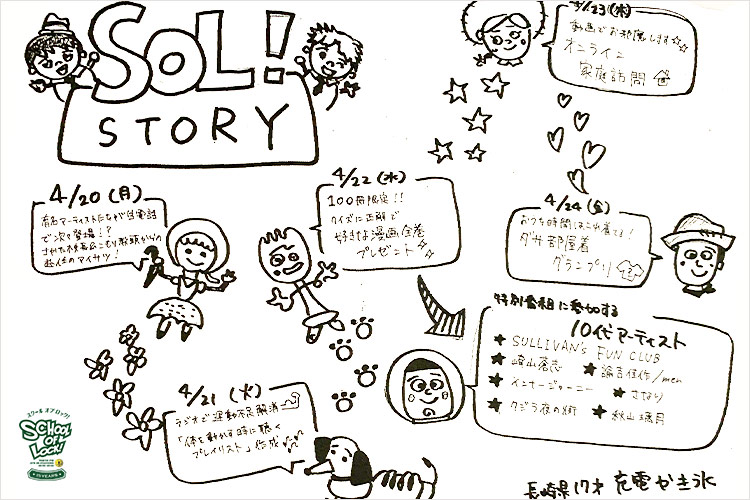 SOL!
STORY
4/20（月）
有名アーティストになりが自宅話
で次々登場！？
4/21（火）
ラジオで運動不足解消
「体を動かす時に聴く
プレイリスト」作成
4/22（水）
100冊限定！！
クイズに正解で
好きな漫画全巻
プレゼント
4/23（木）
動画でお邪魔します☆☆
オンライン
家庭訪問
4/24（金）
ダサ部屋着
グランプリ
特別番組に参加する
10代アーティスト
★ SULLIVAN's FUN CLUB
★ 崎山蒼志
★ 諭吉佳作/men
★ インナージャーニー
★ さなり
★ クジラ夜の街
★ 秋山璃月
長崎県 17才 充電かき氷
スクールオブロック!
SCHOOL
OF
LOCK!
15 YEARS